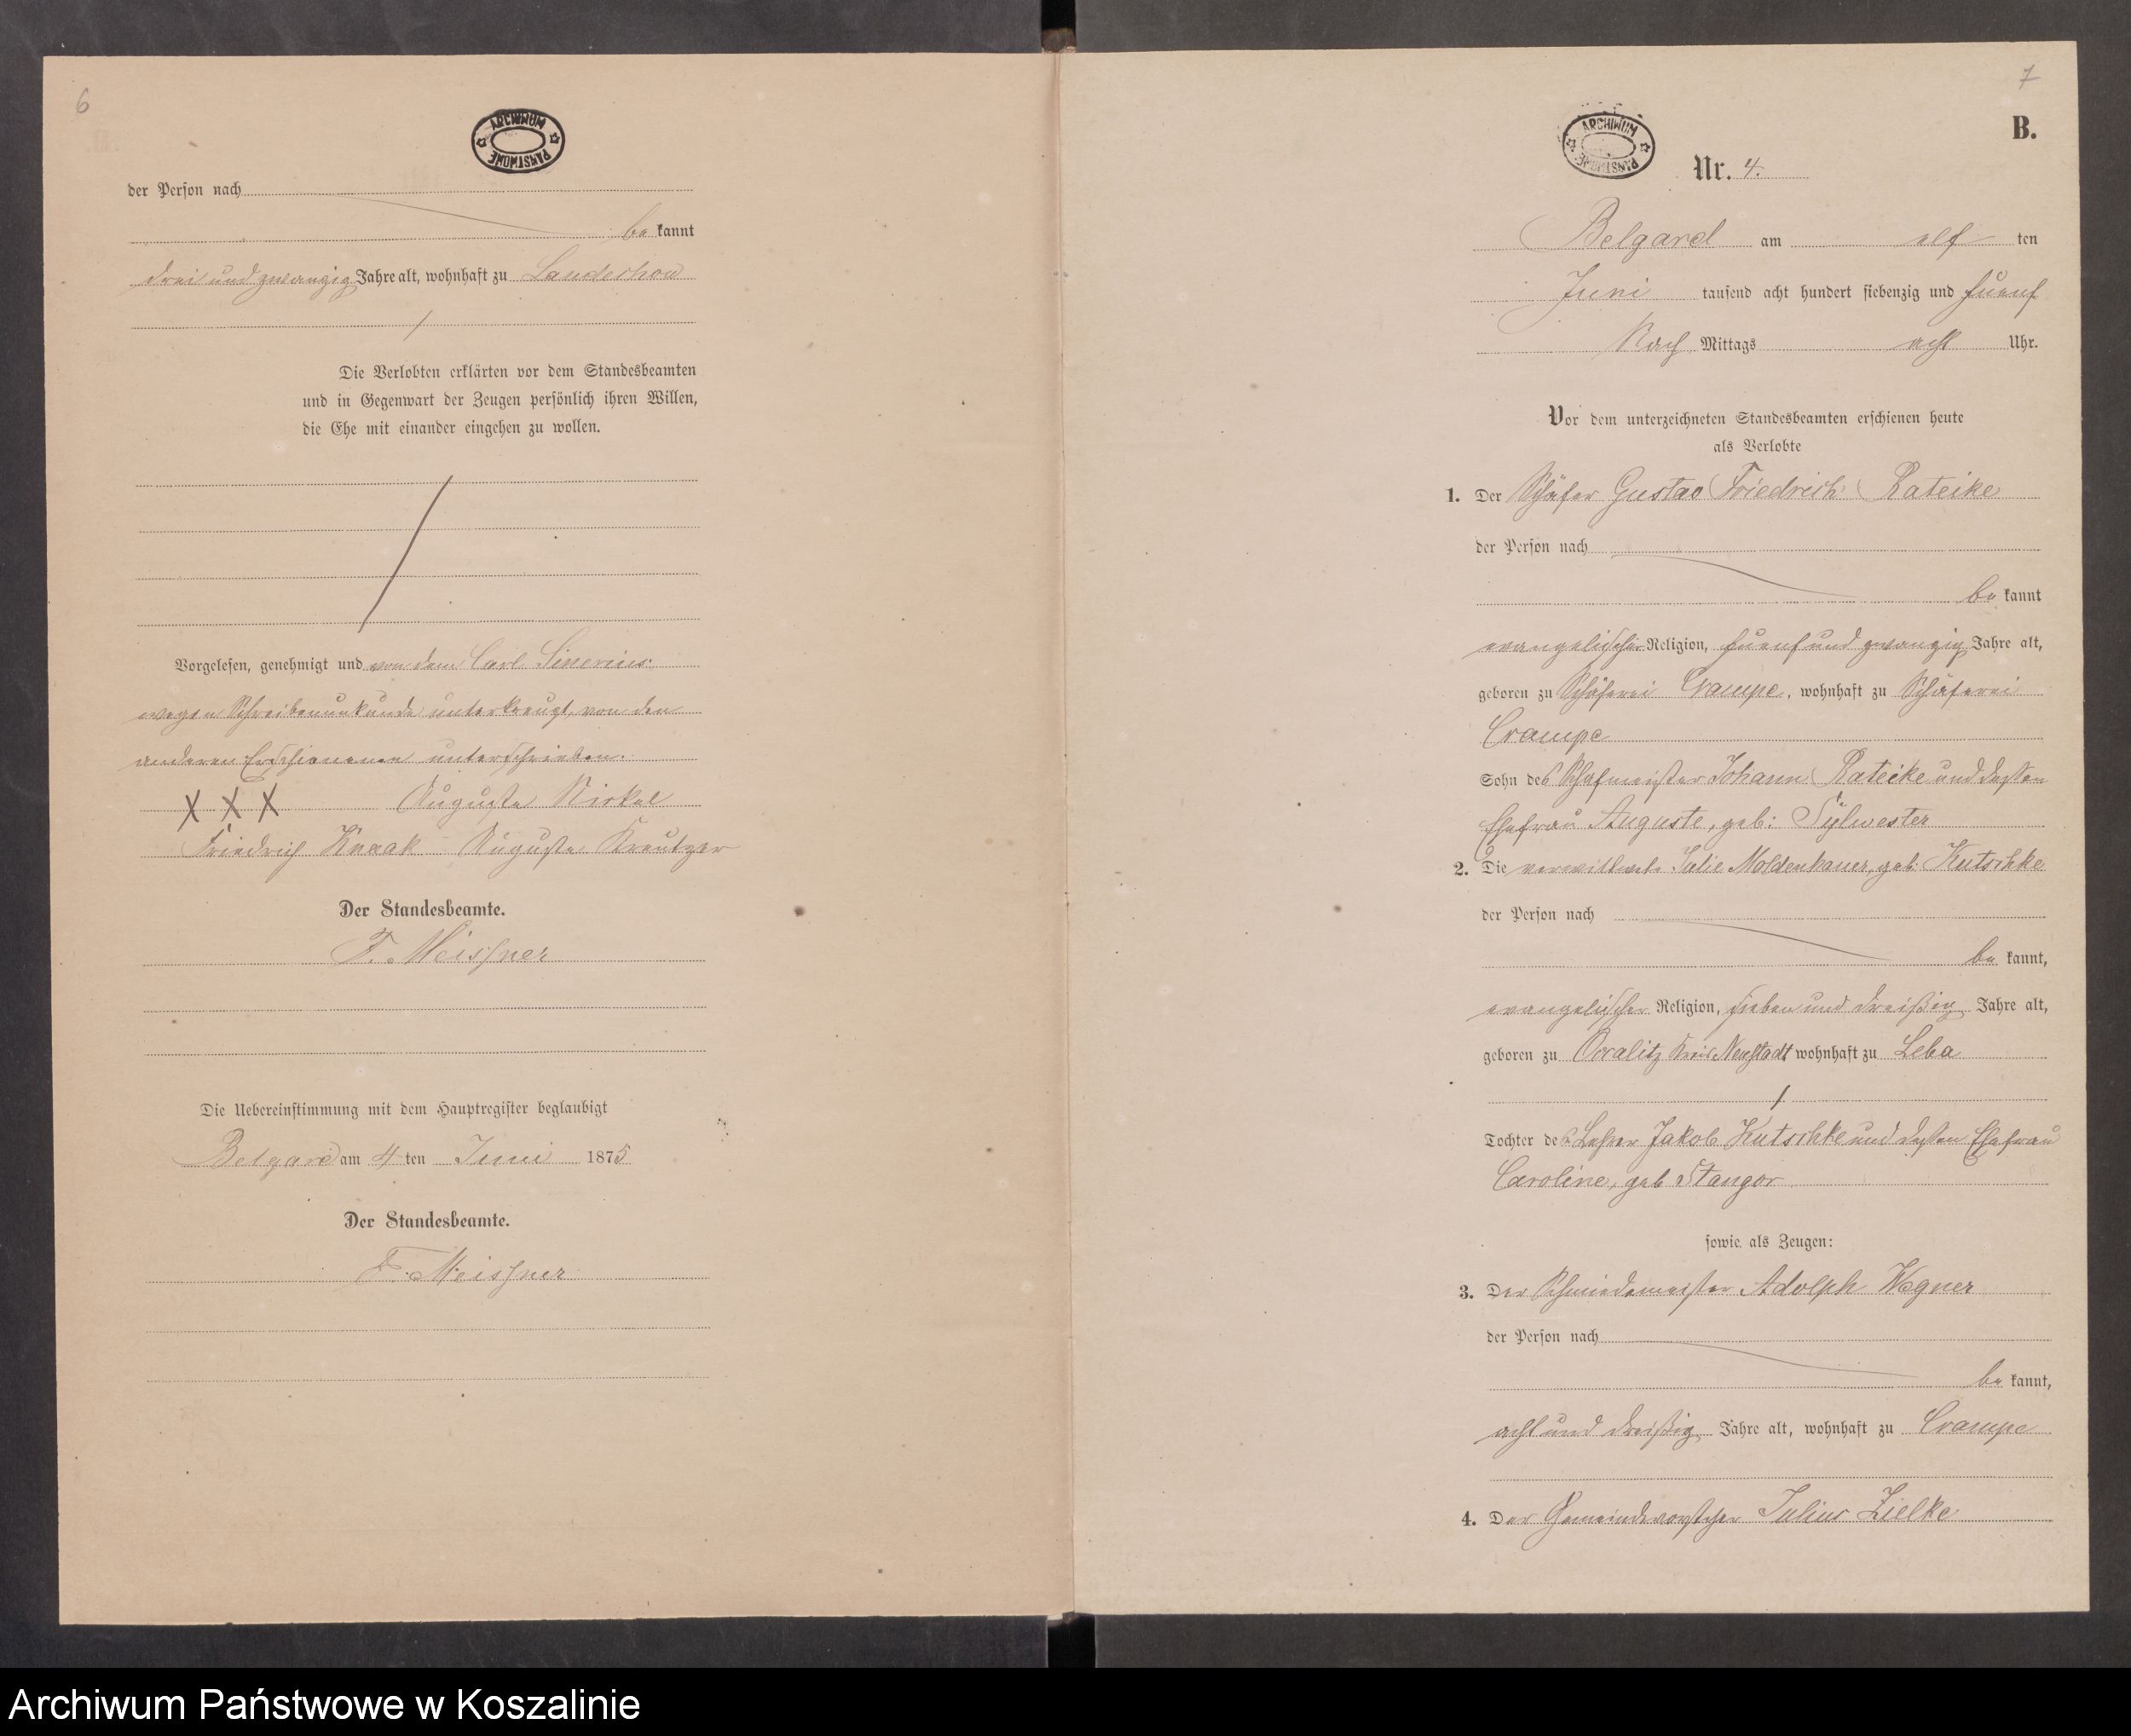 6
ARCHIWUM PAŃSTWOWE
der Person nach
be kannt
drei und zwanzig Jahre alt, wohnhaft zu Landechow
Die Verlobten erklärten vor dem Standesbeamten
und in Gegenwart der Zeugen persönlich ihren Willen,
die Ehe mit einander eingehen zu wollen.
Vorgelesen, genehmigt und von dem Carl
wegen Schreibenunkunde unterkreuzt, von den
anderen Erschienenen unterschrieben.
X X X Auguste Nirkel
Friedrich Knaak Auguste Kreutzer
Der Standesbeamte.
F. Meissner
Die Uebereinstimmung mit dem Hauptregister beglaubigt
Belgard am 4 ten Juni 1875
Der Standesbeamte.
F. Meissner
7
B.
ARCHIWUM PAŃSTWOWE
Nr. 4.
Belgard am elf ten
Juni tausend acht hundert siebenzig und fuenf
Nach Mittags acht Uhr.
Vor dem unterzeichneten Standesbeamten erschienen heute
als Verlobte
1. Der Schäfer Gustav Friedrich Rateike
der Person nach
be kannt
evangelischer Religion, fuenf und zwanzig Jahre alt,
geboren zu Schäferei Crampe, wohnhaft zu Schäferei
Crampe
Sohn des Schafmeister Johann Rateike und dessen
Ehefrau Auguste, geb: Sylwester
2. Die verwittwete Julie Moldenhauer, geb: Kutschke
der Person nach
be kannt,
evangelischer Religion, sieben und dreißig Jahre alt,
geboren zu Kreis Neustadt wohnhaft zu Leba
Tochter des Lehrer Jakob Kutschke und dessen Ehefrau
Caroline, geb Stangor
sowie als Zeugen:
3. Der Schmiedemeister Adolph Wegner
der Person nach
be kannt,
acht und dreißig Jahre alt, wohnhaft zu Crampe
4. Der Gemeindevorsteher Julius Zielke
Archiwum Państwowe w Koszalinie